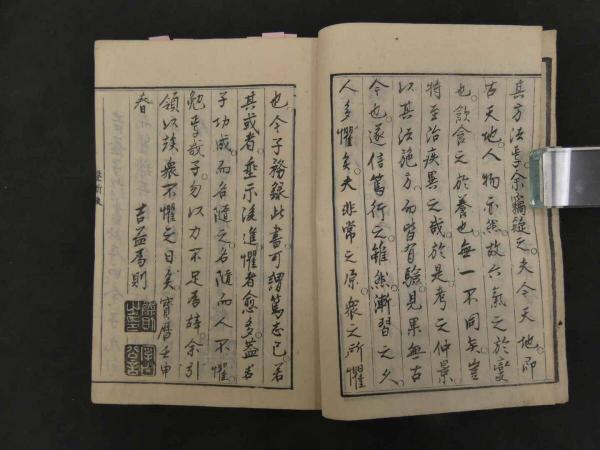 其方法焉余竊疑之夫今天地即
古天地人物亦然故六氣之於變
也飲食之於養也無一不同矣豈
特至治疾異之哉於是考之仲景
以其法施方而皆有驗見果無古
今也遂信篤行之雖然漸習之久
人多懼矣夫非常之原衆之所懼
也今子務錄此書可謂篤志已若
其或者垂示後進懼者愈多益若
子功成而名隨之名隨而人不懼
勉焉哉子勿以力不足為辭余引
領以俟衆不懼之日矣寶曆壬申
春
吉益為則